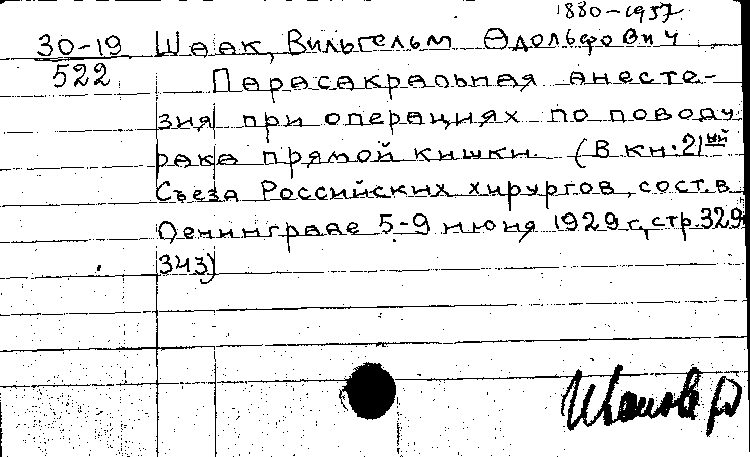 1880-1957
30-19 Шаак, Вильгельм Адольфович
522 Парасакральная анесте-
зия при операциях по поводу
рака прямой кишки. (В кн: 21ый
Съезд Российских хирургов, сост. в
Ленинграде 5-9 июня 1929 г., стр. 329
343)